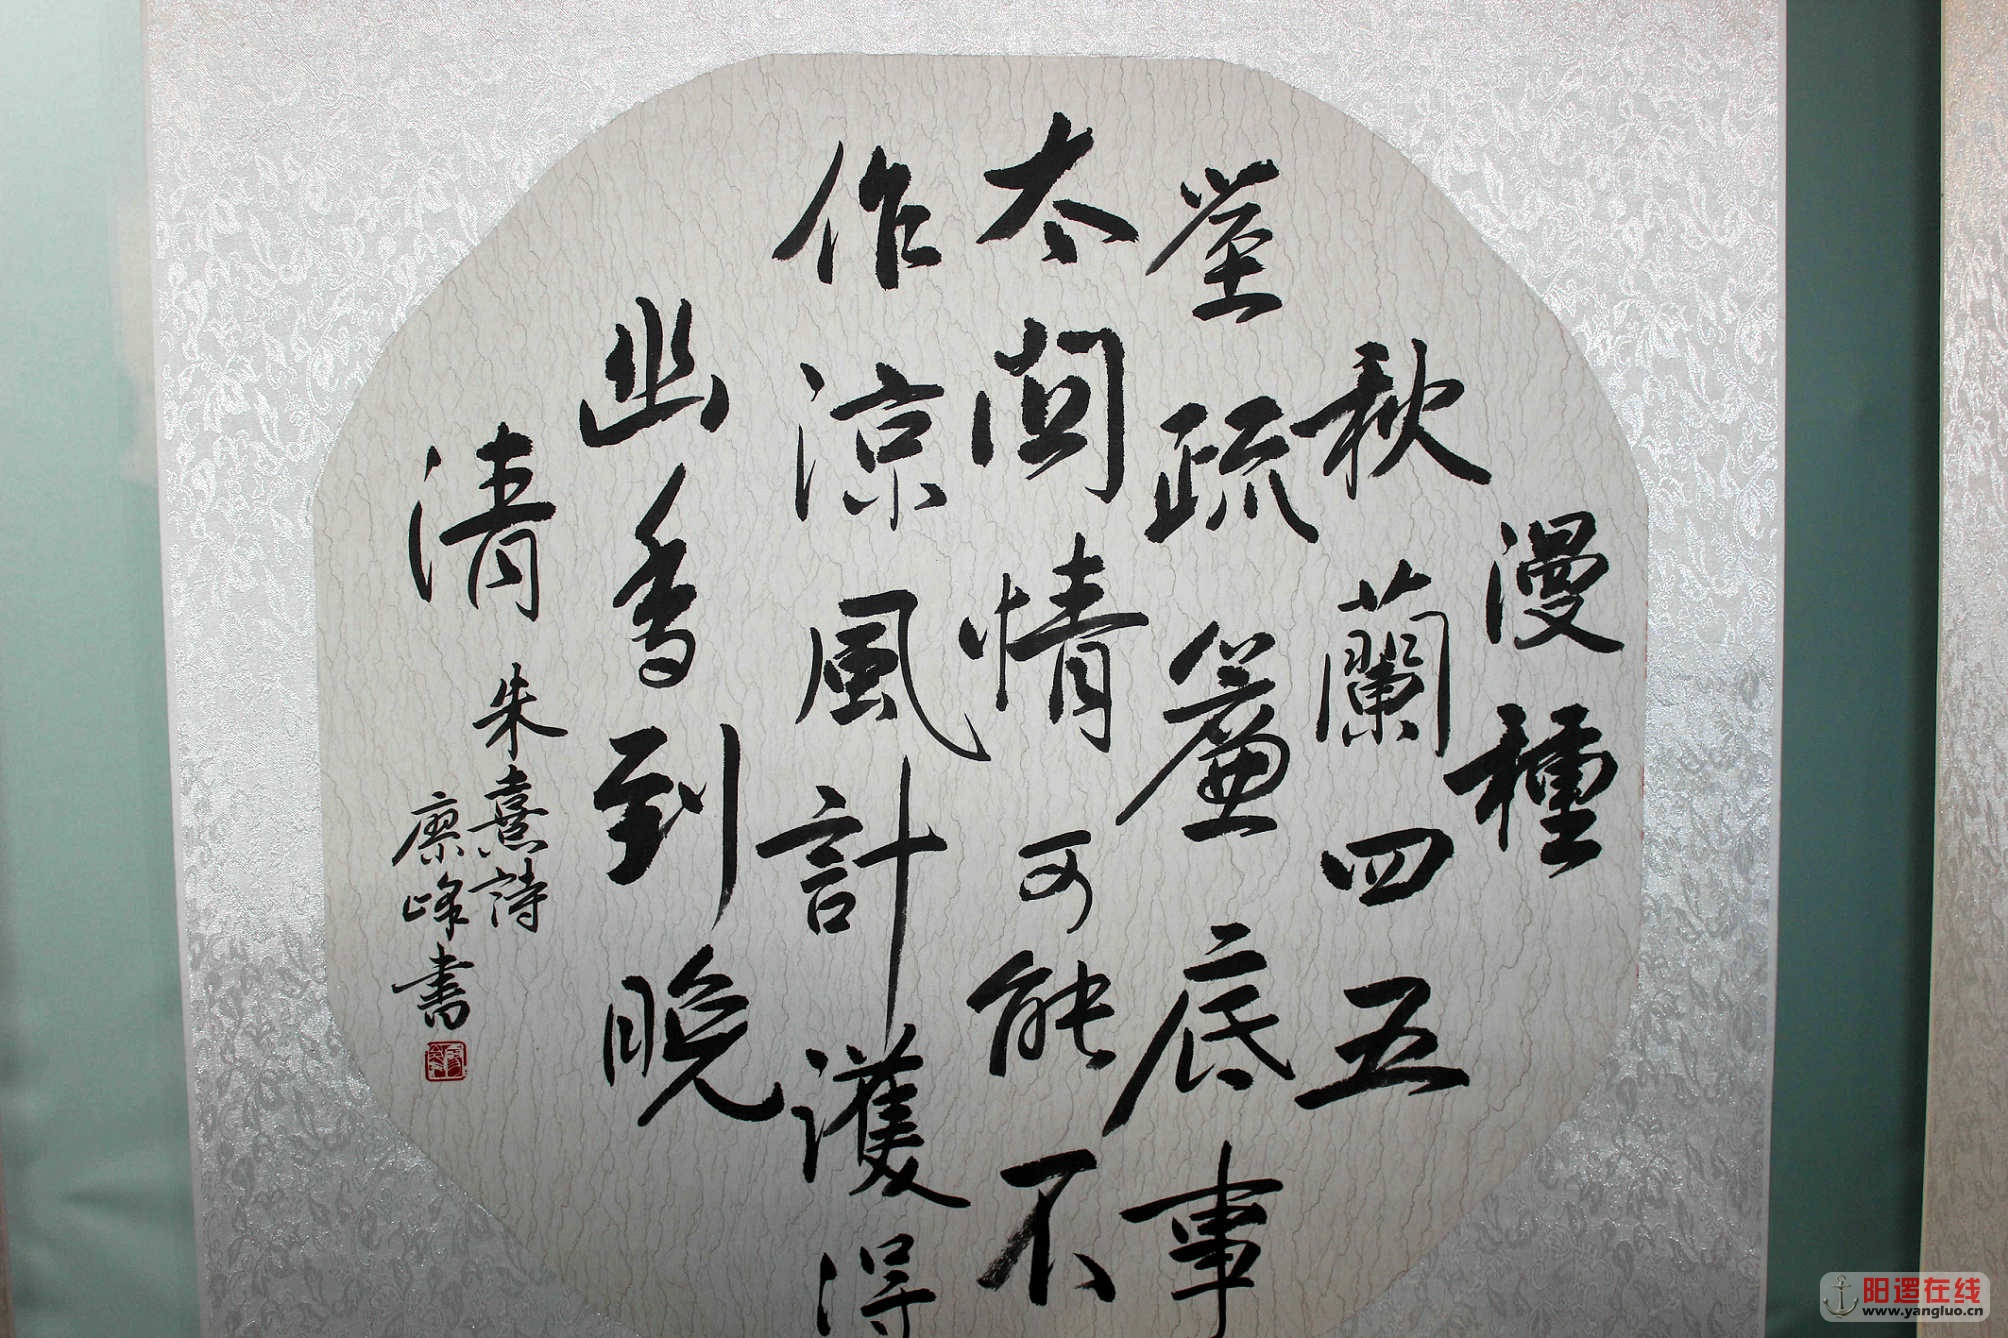 漫種
秋蘭四五
莖疏簾底事
太関情可能不
作涼風計護得
幽香到晚
清
朱熹詩
廖峰書
阳逻在线
www.yangluo.cn